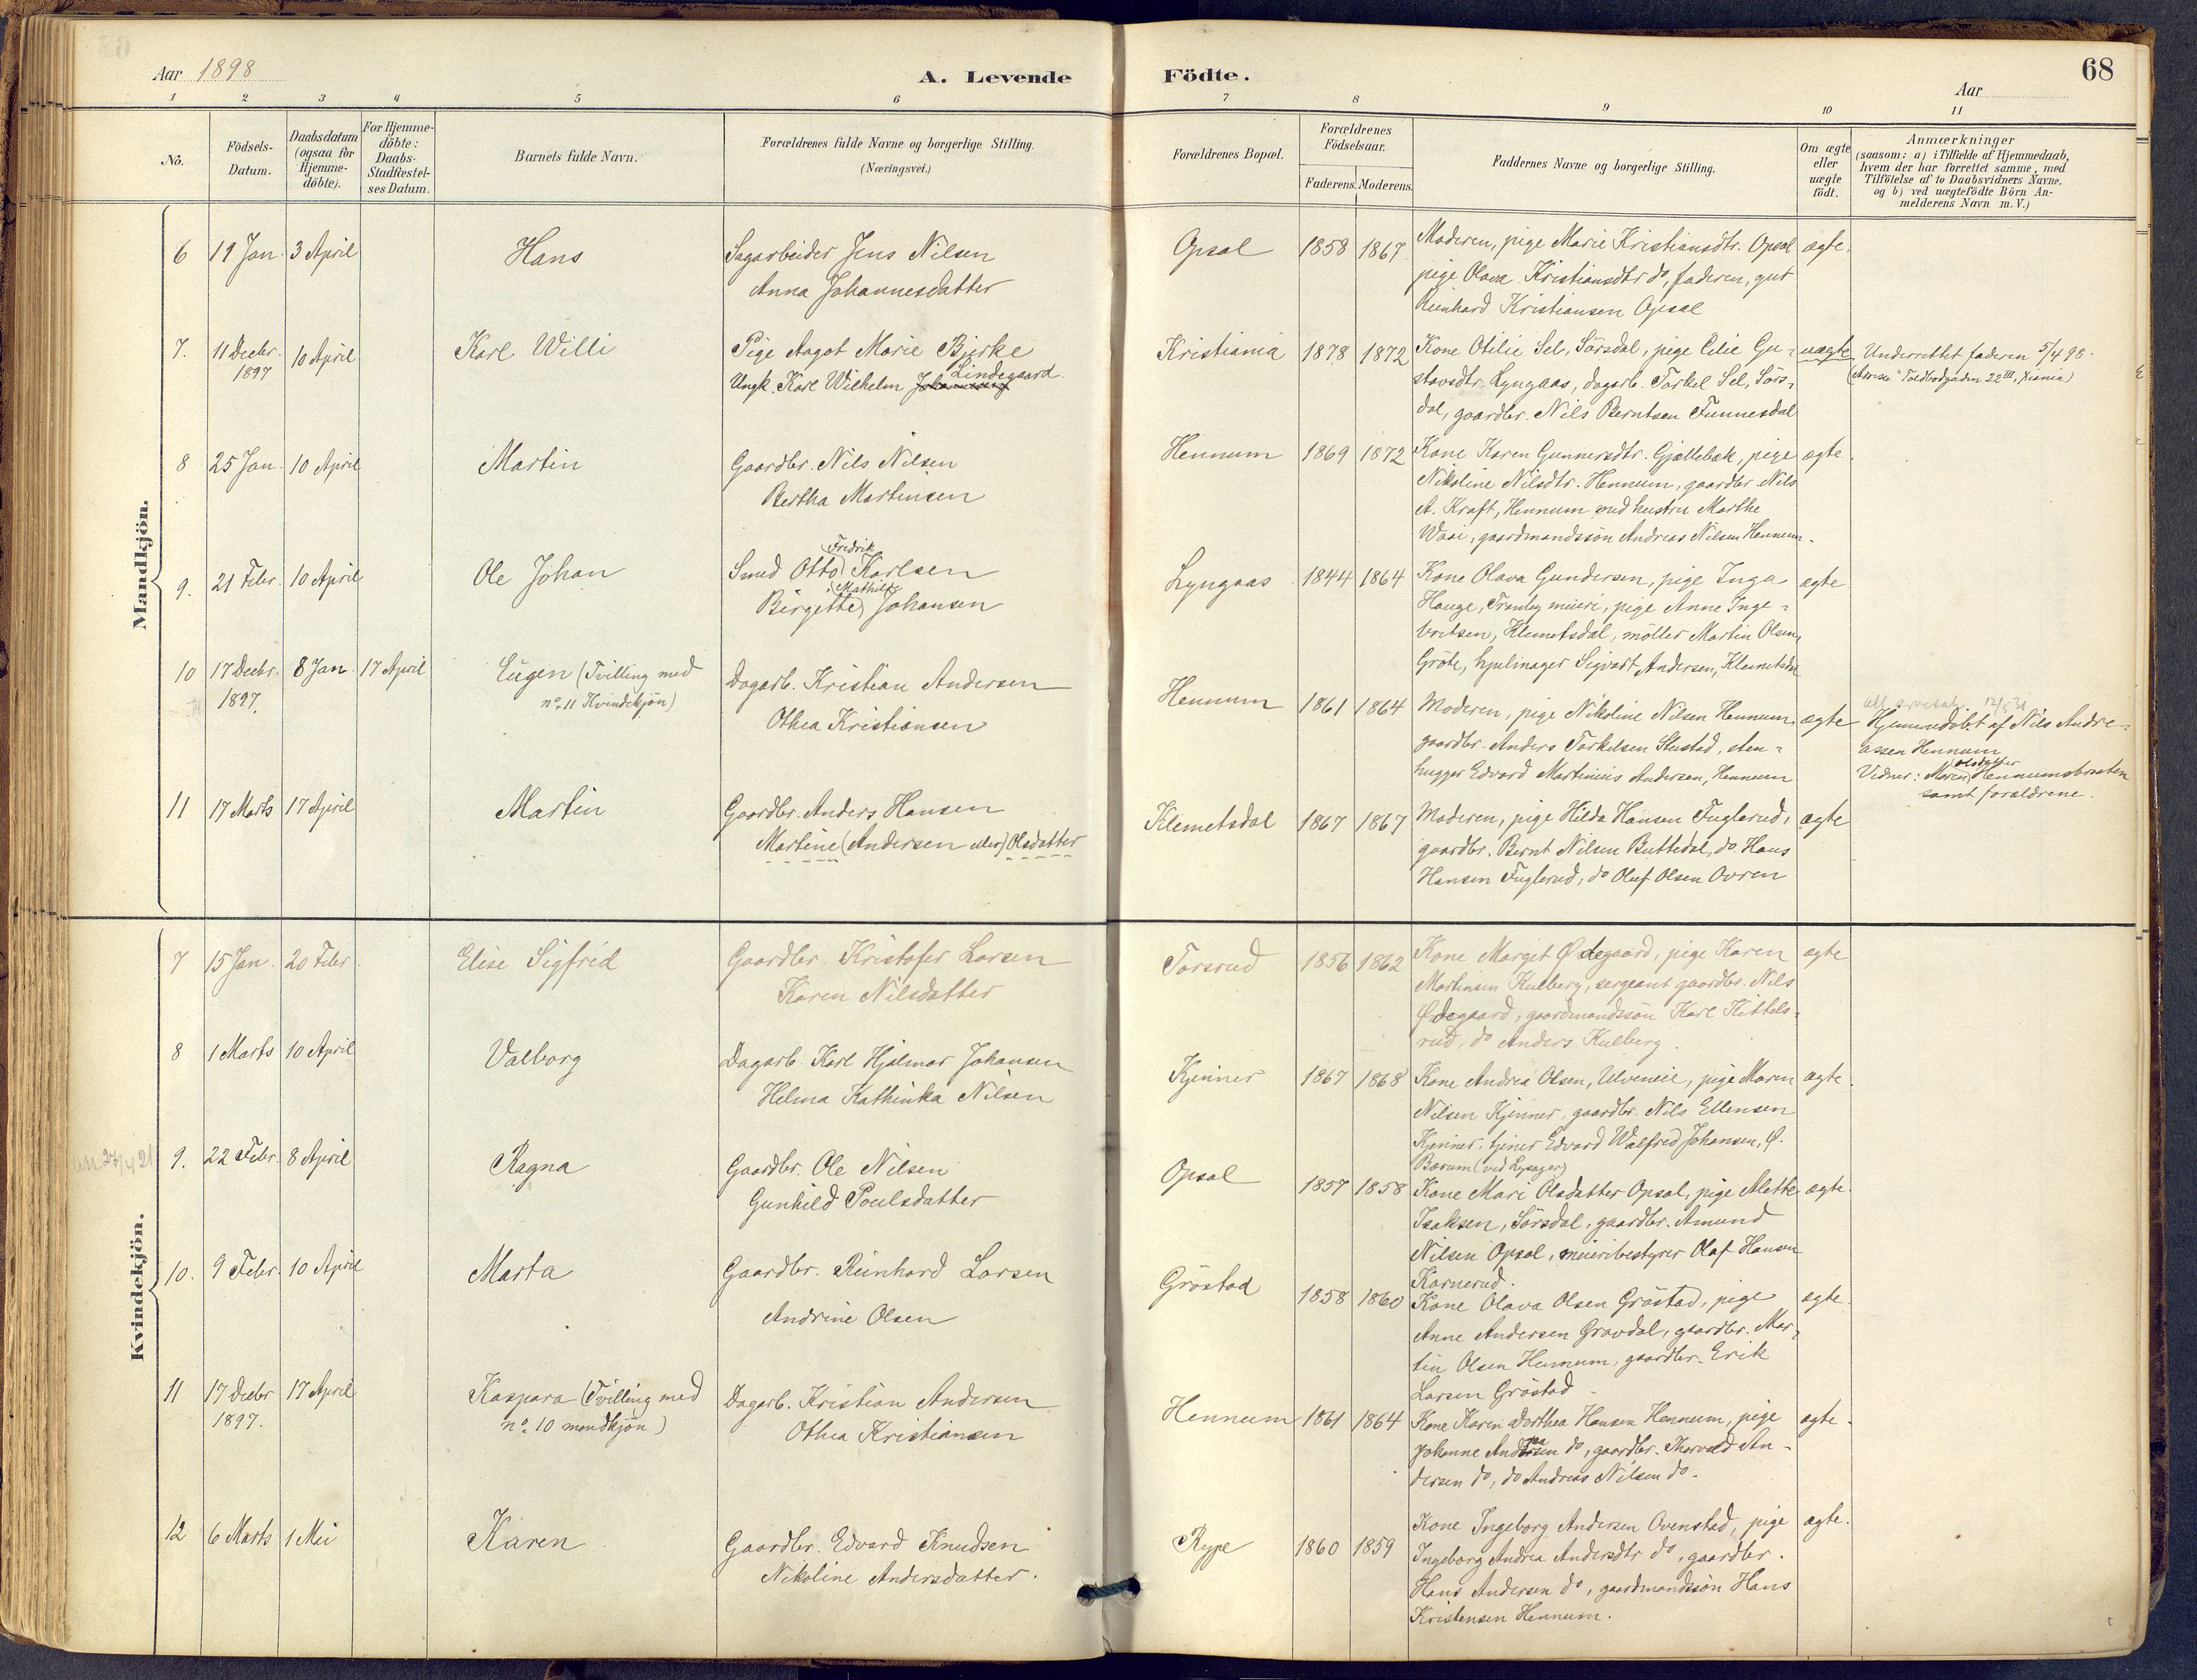 Aar 1898
A. Levende Födte.
68
Aar
1 2 3 4 5 6 7 8 9 10 11
Nö.
Födsels-
Datum.
Daabsdatum
(ogsaa for
Hjemme-
döbte).
For Hjemme-
döbte:
Daabs-
Stadfæstel-
ses Datum.
Barnets fulde Navn.
Forældrenes fulde Navne og borgerlige Stilling.
(Næringsvei.)
Forældrenes Bopæl.
Forældrenes
Födselsaar.
Faderens. Moderens.
Faddernes Navne og borgerlige Stilling.
Om ægte
eller
uægte
födt.
Anmærkninger
(saasom: a) i Tilfælde af Hjemmedaab,
hvem der har forrettet samme, med
Tilföielse af to Daabsvidners Navne.
og b) ved uægtefödte Börn An-
melderens Navn m. V.)
Mandkjön.
6 19 Jan. 3 April Hans
Sagarbeider Jens Nilsen
Anna Johannesdatter
Opsal 1858 1867
Moderen, pige Marie Kristiansdtr. Opsal
pige Olava Kristiansdtr do, faderen, gut
Reinhard Kristiansen Opsal
ægte.
7. 11 Decbr.
1897
10 April Karl Willi
Pige Aagot Marie Bjerke
Lindegaard
Ungk. Karl Wilhelm
Kristiania 1878 1872
Kone Otilie Sel, Sörsdal, pige Celie Gu-
stavsdtr. Lyngaas, dagarb. Torkel Sel, Sörs-
dal, gaardbr. Nils Berntsen Tunnesdal
uægte
Underrettet faderen 5/4 98.
(Adresse" Toldbodgaden 22 III, Xiania)
8 25 Jan. 10 April Martin
Gaardbr. Nils Nilsen
Bertha Martinsen
Hennum 1869 1872
Kone Karen Gunnersdtr. Gjellebæk, pige
Nikoline Nilsdtr. Hennum, gaardbr Nils
A. Kraft, Hennum med hustru Marthe
gaardmandssön Andreas Nilsen Hennum.
ægte.
9. 21 Febr. 10 April Ole Johan
Fredrik
Smed Otto Karlsen
Mathilde
Birgette Johansen
Lyngaas 1844 1864
Kone Olava Gundersen, pige Inga
Hauge, Tranby meieri, pige Anne Inge-
bretsen, Klemetsdal, möller Martin Olsen,
Gröte, hjulmager Sigvart Andersen, Klemetsdal
ægte
10 17 Decbr.
1897.
8 Jan 17 April
Eugen (Tvilling med
no. 11 Kvindekjön)
Dagarb. Kristian Andersen
Othea Kristiansen
Hennum 1861 1864
Moderen, pige Nikoline Nilsen Hennum,
gaardbr. Anders Torkelsen Stustad, sten-
hugger Edvard Martinius Andersen, Hennum
ægte
Hjemmedöbt af Nils Andre-
assen Hennum
Olsdatter
Vidner: Maren Hennumsbraaten
samt foraldrene.
11 17 Marts 17 April Martin
Gaardbr. Anders Hansen
Martine (Andersen eller) Olsdatter
Klemetsdal 1867 1867
Moderen, pige Hilda Hansen Fuglerud,
gaardbr. Bernt Nilsen Buttedal, do Hans
Hansen Fuglerud, do Oluf Olsen Ovren
ægte
Kvindekjön.
7 15 Jan. 20 Febr. Elise Sigfrid
Gaardbr. Kristofer Larsen
Karen Nilsdatter
Torsrud 1856 1862
Kone Margit Ødegaard, pige Karen
Martinsen Kulberg, sergeant gaardbr. Nils
Ødegaard, gaardmandssön Karl Kittels-
rud, do Anders Kulberg.
ægte
8 1 Marts 10 April Valborg
Dagarb. Karl Hjalmar Johansen
Helma Kathinka Nilsen
Kjenner 1867 1868
Kone Andrea Olsen, Ulveneie, pige Maren
Nilsen Kjenner, gaardbr. Nils Ellensen
Kjenner, tjener Edvard Walfred Johansen, Ø.
Bærum (ved Lysager)
ægte.
9. 22 Febr. 8 April Ragna
Gaardbr. Ole Nilsen
Gunhild Poulsdatter
Opsal 1857 1858
Kone Mari Olsdatter Opsal, pige Alette
Isaksen, Sörsdal, gaardbr. Amund
Nilsen Opsal, meieribestyrer Olaf Hansen
Kornerud.
ægte.
10. 9 Febr. 10 April Marta
Gaardbr. Reinhard Larsen
Andrine Olsen
Gröstad 1858 1860
Kone Olava Olsen Gröstad, pige
Anne Andersen Gravdal, gaardbr. Mar-
tin Olsen Hennum, gaardbr. Erik
Larsen Gröstad
ægte.
11 17 Decbr
1897.
17 April
Kaspara (Tvilling med
no. 10 mandkjön)
Dagarb. Kristian Andersen
Othea Kristiansen
Hennum 1861 1864
Kone Karen Dorthea Hansen Hennum, pige
Johanne do, gaardbr. Thorvald An-
dersen do, do Andreas Nilsen do.
ægte.
12 6 Marts 1 Mai Karen
Gaardbr. Edvard Knudsen
Nikoline Andersdatter.
Rype 1860 1859
Kone Ingeborg Andersen Ovenstad, pige
Ingeborg Andrea Andersdtr do, gaardbr.
Hans Andersen do, gaardmandssön Hans
Kristensen Hennum.
ægte.